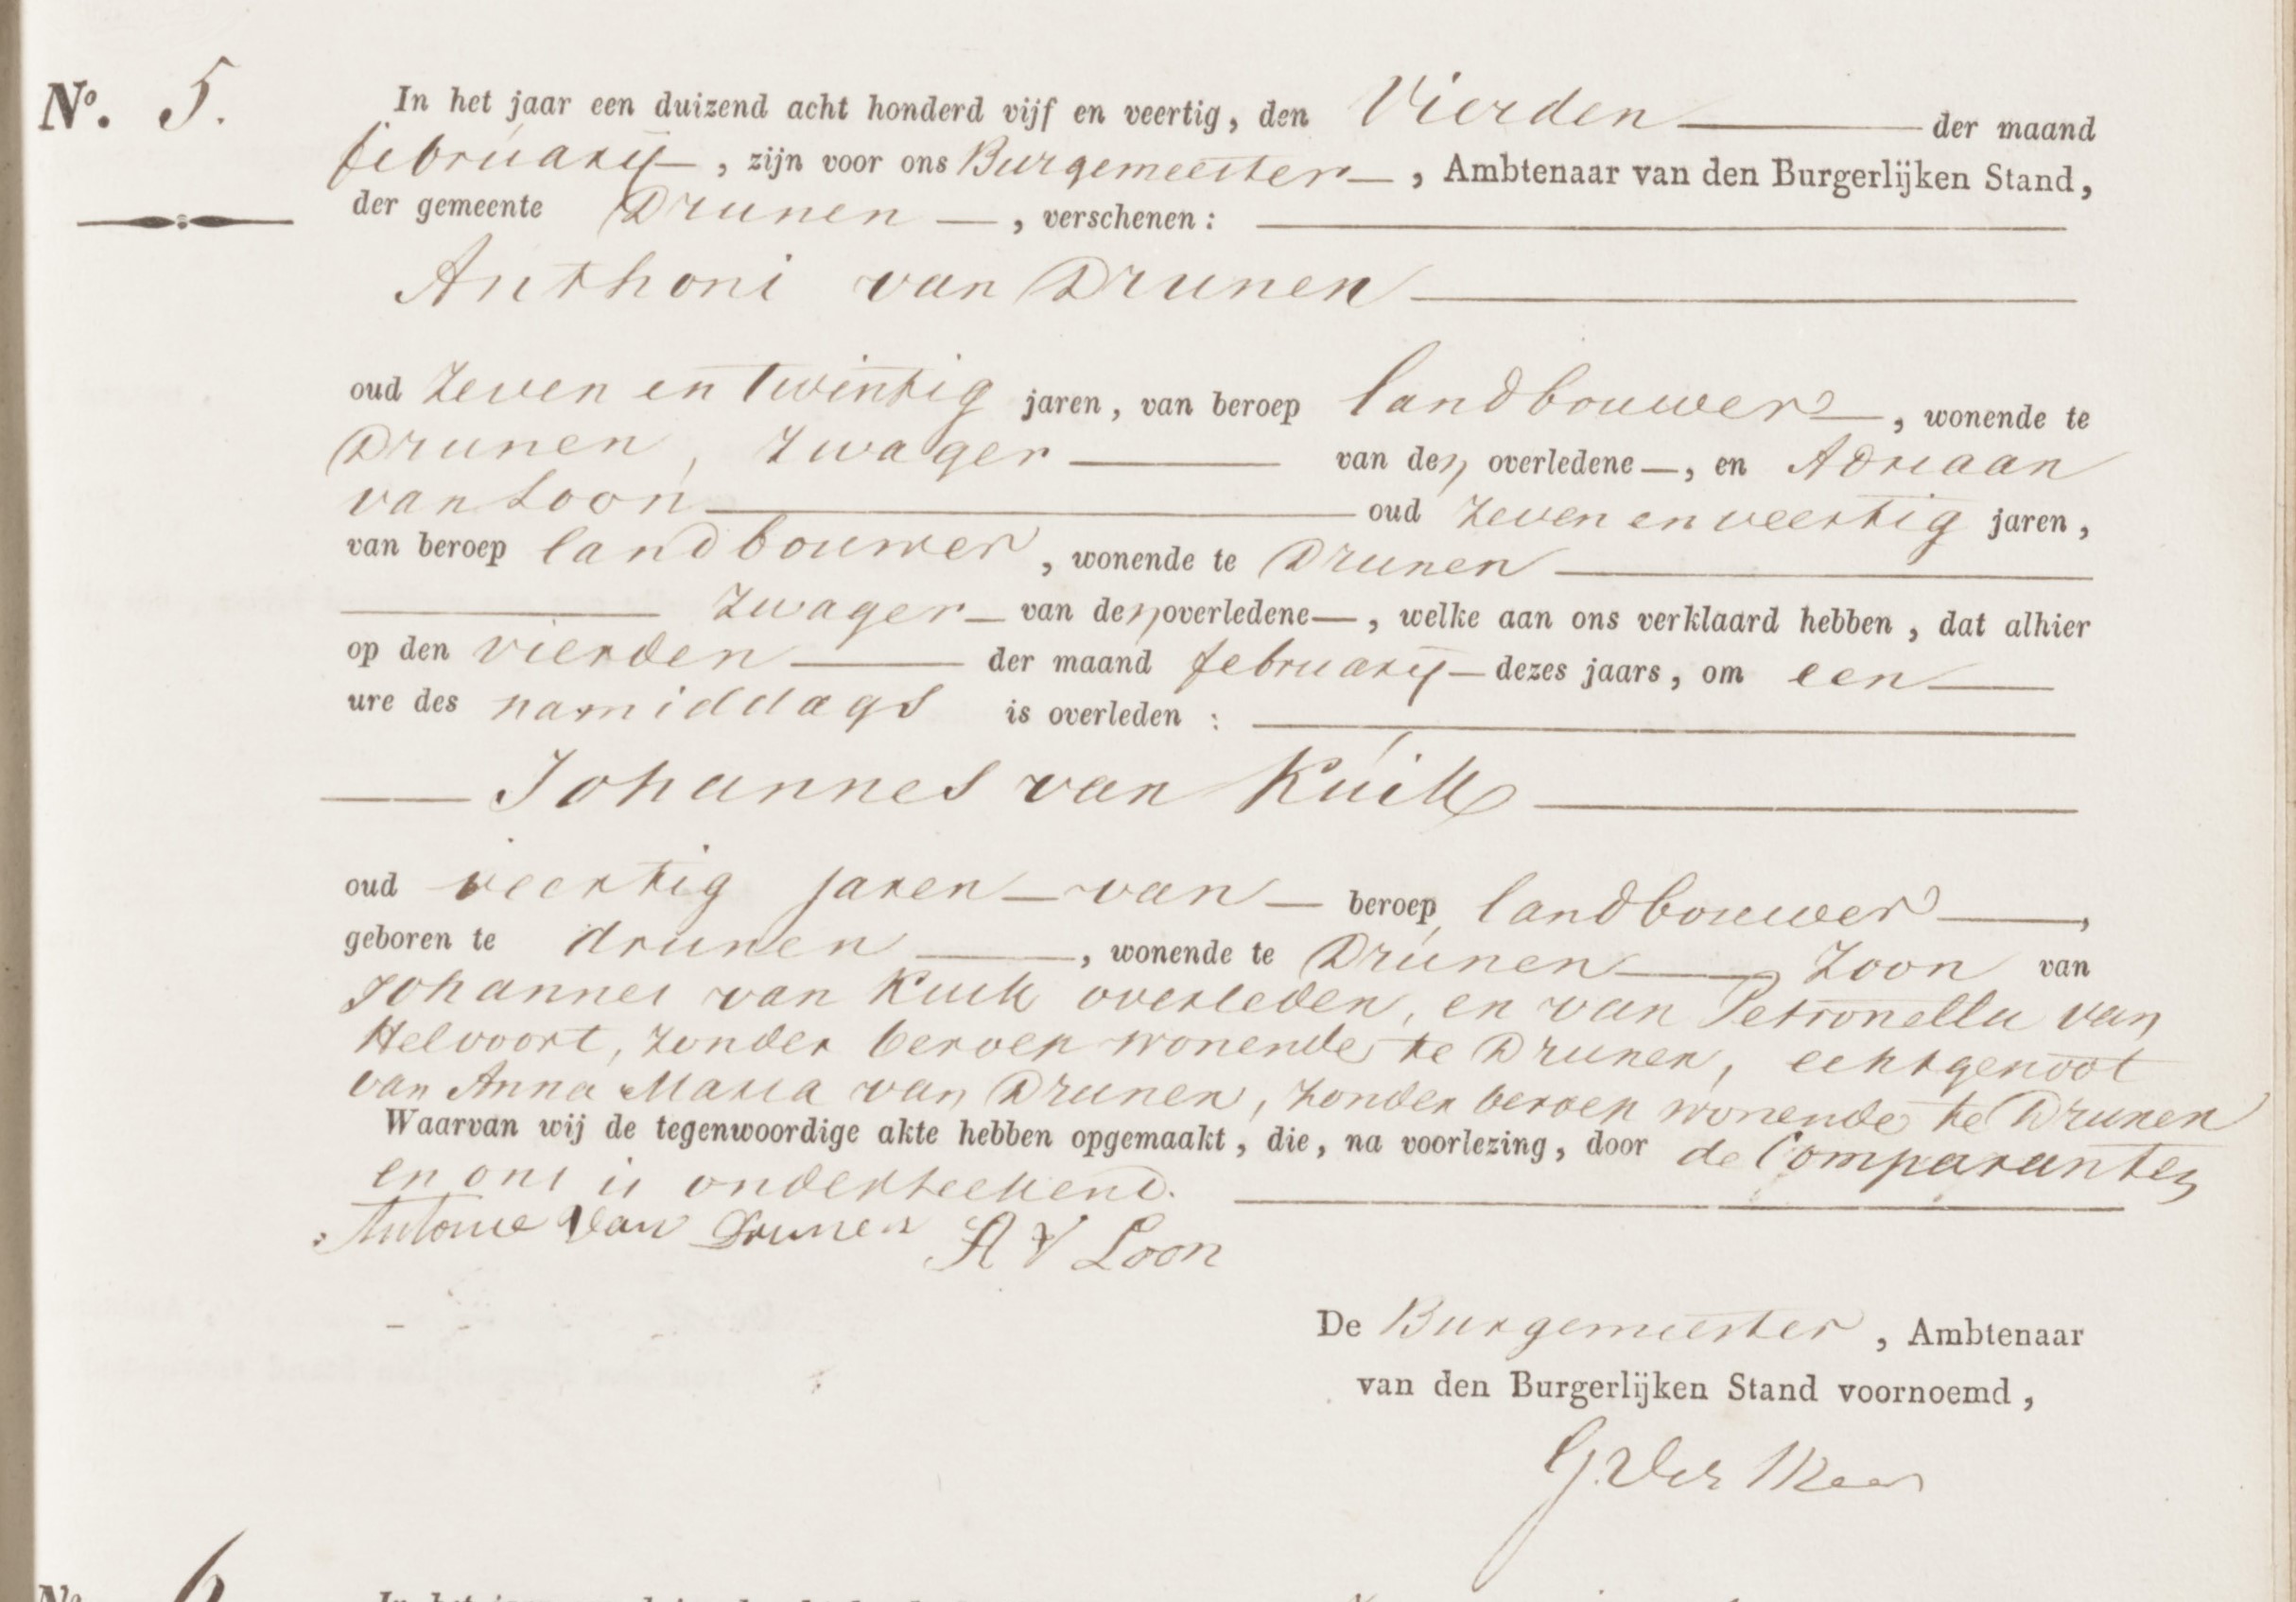 No. 5.
In het jaar een duizend acht honderd vijf en veertig, den Vierden der maand
february, zijn voor ons Burgemeester, Ambtenaar van den Burgerlijken Stand,
der gemeente Drunen, verschenen:
Anthoni van Drunen
oud Zeven en Twintig jaren, van beroep landbouwer, wonende te
Drunen, Zwager van den overledene, en Adriaan
van Loon oud Zeven en veertig jaren,
van beroep landbouwer, wonende te Drunen
Zwager van den overledene, welke aan ons verklaard hebben, dat alhier
op den vierden der maand february dezes jaars, om een
ure des namiddags is overleden:
Johannes van Kuik
oud veertig jaren van beroep landbouwer,
geboren te drunen, wonende te Drunen Zoon van
Johannes van Kuik overleden, en van Petronella van
Helvoort, zonder beroep wonende te Drunen, echtgenoot
van Anna Maria van Drunen, zonder beroep wonende te Drunen
Waarvan wij de tegenwoordige akte hebben opgemaakt, die, na voorlezing, door de Comparanten
en ons is onderteekend.
Antonie van Drunen A V Loon
De Burgemeester, Ambtenaar
van den Burgerlijken Stand voornoemd,
No. 6